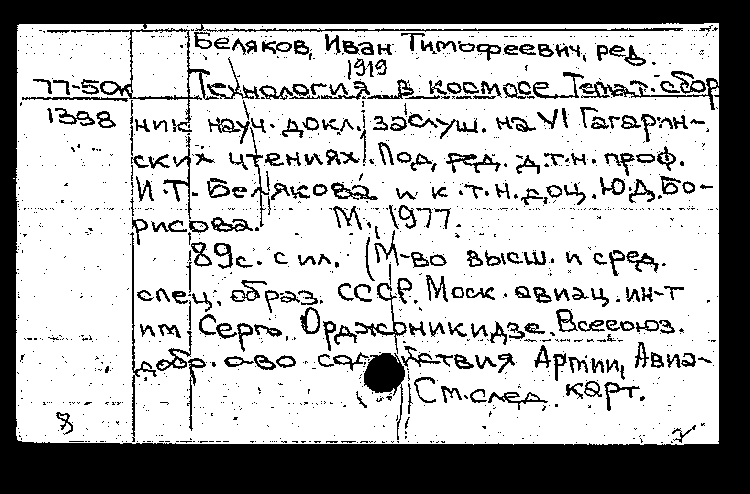 Беляков, Иван Тимофеевич, ред.
1919
77-50к Технология в космосе. Темат. сбор
1388 ник науч. докл., заслуш. на VI Гагарин-
ских чтениях. Под ред. д.т.н. проф.
И.Т. Белякова и к.т.н. доц. Ю.Д. Бо-
рисова. М., 1977.
89с. с ил. (М-во высш. и сред.
спец. образ. СССР. Моск. авиац. ин-т
им. Серго Орджоникидзе. Всесоюз.
добр. о-во содействия Армии, Авиа-
См. след. карт.
8